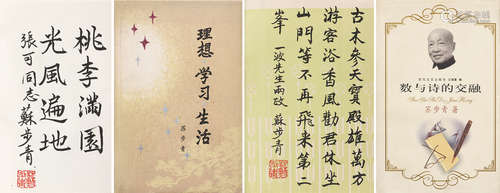 桃李滿園
光風遍地
張可同志蘇步青
理想 学习 生活
苏步青
古木參天寶殿雄萬方
游客浴香風勸君休坐
山門等不再飛來第二
峯 一波先生兩政 蘇步青
数与诗的交融
苏步青 著